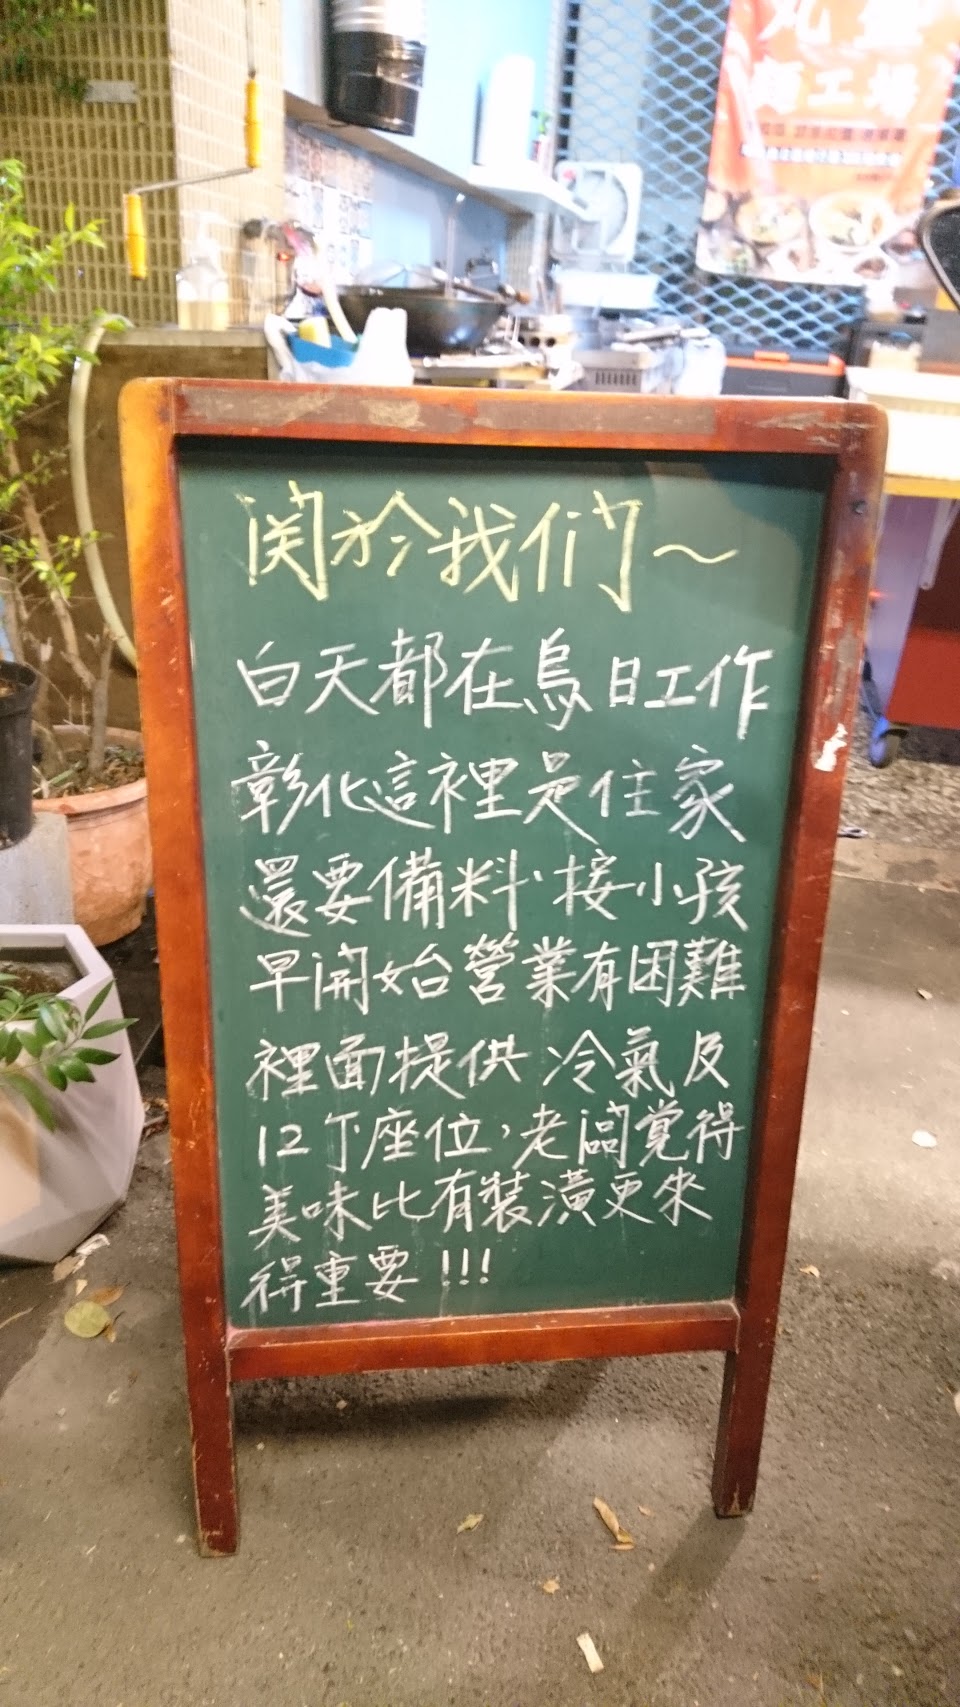 麵工場
関於我们~
白天都在烏日工作
彰化這裡是住家
還要備料、接小孩
早開始營業有困難
裡面提供冷氣及
12个座位,老闆覚得
美味比有裝潢更來
得重要!!!